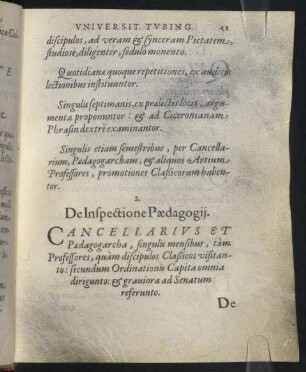 VNIVERSIT. TVBING.
discipulos, ad veram & synceram Pietatem,
studiosè, diligenter, sedulò monento.
Quotidianæ quoque repetitiones, ex auditis
lectionibus instituuntor.
Singulis septimanis, ex prælectis locis, argumenta
proponuntor: & ad Ciceronianam
Phrasin dextrè examinantor.
Singulis etiam semestribus, per Cancellarium,
Pædagogarcham, & aliquos Artium
Professores, promotiones Classicorum habentor.
2.
De Inspectione Pædagogij.
CANCELLARIVS ET
Pædagogarcha, singulis mensibus, tàm
Professores, quàm discipulos Classicos visitanto:
secundum Ordinationis Capita omnia
dirigunto: & grauiora ad Senatum
referunto.
De